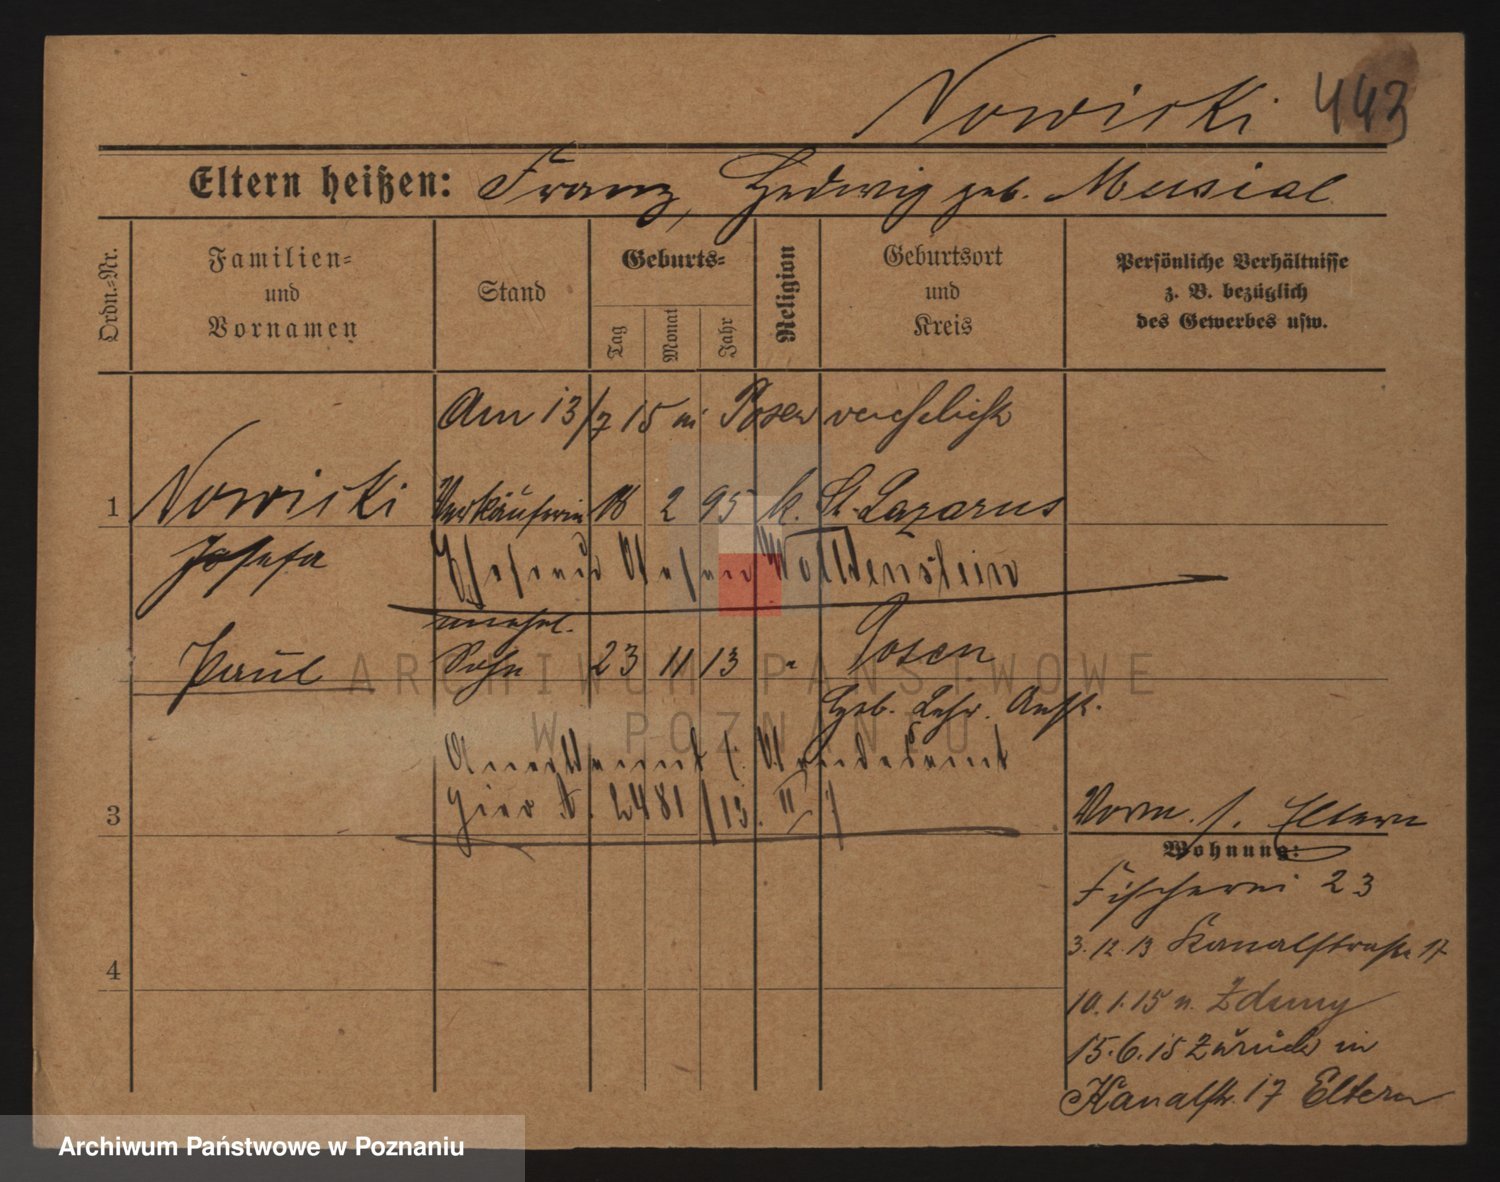 Nowicki 443
Eltern heißen: Franz, Hedwig geb. Musial
Ordn.-Nr.
Familien-
und
Vornamen
Stand
Geburts-
Tag
Monat
Jahr
Religion
Geburtsort
und
Kreis
Persönliche Verhältnisse
z. B. bezüglich
des Gewerbes usw.
Am 13/7 15 in Posen verehelicht
1 Nowicki Verkäuferin 18 2 95 k. St. Lazarus
Josefa Ehefrau
unehel.
Paul Sohn 23 11 13 " Posen
Geb. Lehr. Anst.
Anerkannt f. Standesamt
hier N. 2481/13. II
3
Vorm. s. Eltern
Wohnung:
Fischerei 23
3.12.13 Kanalstraße 17
4
10.1.15 n. Zduny
15.6.15 Zurück in
Kanalstr. 17 Eltern
ARCHIWUM PAŃSTWOWE
W POZNANIU
Archiwum Państwowe w Poznaniu